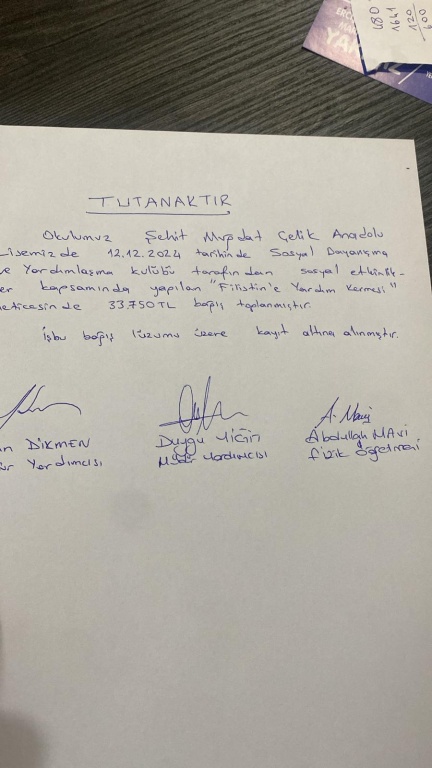 480
1641
120
600
YA
TUTANAKTIR
Okulumuz Şehit Mürdat Çelik Anadolu
Lisemizde 12.12.2024 tarihinde Sosyal Dayanışma
ve Yardımlaşma kulübü tarafından sosyal etkinlik-
ler kapsamında yapılan "Filistin'e Yardım Kermesi"
neticesinde 33.750 TL bağış toplanmıştır.
İşbu bağış lüzumu üzere kayıt altına alınmıştır.
DİKMEN
Yardımcısı
Duygu YİĞİN
Müdür Yardımcısı
A. Mavi
Abdullah MAVİ
Fizik Öğretmeni